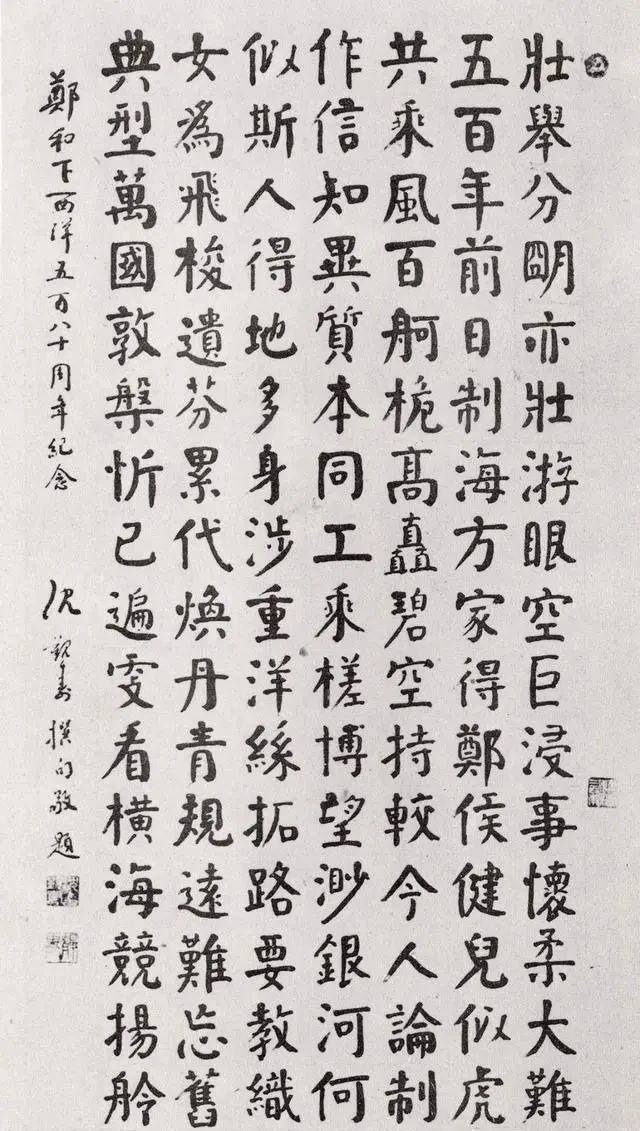 壯舉分朙亦壯游眼空巨浸事懷柔大難
五百年前日制海方家得鄭侯健兒似虎
共乘風百舸桅髙矗碧空持較今人論制
作信知異質本同工乘槎博望渺銀河何
似斯人得地多身涉重洋絲拓路要教織
女爲飛梭遺芬累代煥丹青規遠難忘舊
典型萬國敦槃忻已遍更看橫海競揚舲
鄭和下西洋五百八十周年紀念
沈覲壽撰句敬題